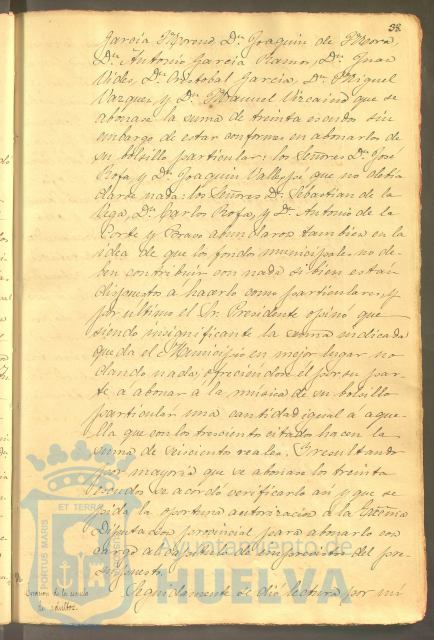 38.
García Dn. Joaquin de Mora,
Dn. Antonio García Ramos, Dn. Juan
Vides, Dn. Cristobal García, Dn. Miguel
Vazquez, y Dn. Manuel Vizcaino que se
abonase la suma de treinta escudos sin
embargo de estar conformes en abonarlos de
su bolsillo particular: los Señores Dn. José
Rofa y Dn. Joaquin que no debía
darse nada: los Señores Dn. Sebastian de la
Vega, Dn. Carlos Rofa, y Dn. Antonio de la
Corte y Bravo abundaron tambien en la
idea de que los fondos municipales no de-
ben contribuir con nada si bien estan
dispuestos á hacerlo como particulares, y
por ultimo el Sr. Presidente opinó que
siendo insignificante la suma indicada
queda el Municipio en mejor lugar no
dando nada, ofreciendose el por su par-
te á abonar á la música de su bolsillo
particular una cantidad igual á aque-
lla que con los trescientos citados hacen la
suma de seiscientos reales. Y resultando
por mayoria que se abonase los treinta
escudos se acordó verificarlo asi y que se
pida la oportuna autorizacion á la Excma
Diputacion provincial para abonarlo con
cargo al capitulo de imprevistos del pre-
supuesto.
Creacion de la escuela
de adultos.
Seguidamente se dió lectura por mi
ET TERRÆ
PORTUS MARIS
Ayuntamiento de
HUELVA